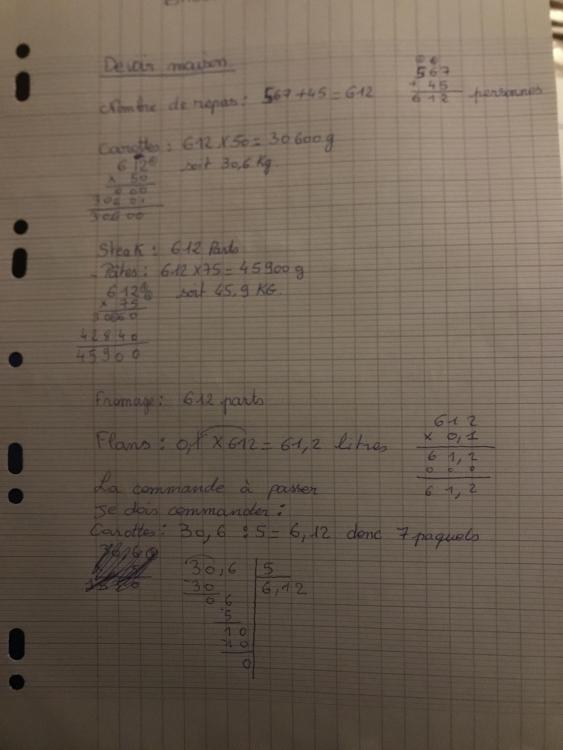 Devoir maison
Nombre de repas : 567+45 = 612 personnes
567
+ 45
612
Carottes : 612 x 50 = 30600 g
soit 30,6 Kg.
612
x 50
000
30600
30600
Steak : 612 Parts
- Pâtes : 612 x 75 = 45900 g
soit 45,9 KG.
612
x 75
3060
42840
45900
Fromage : 612 parts
Flans : 0,1 x 612 = 61,2 litres
612
x 0,1
61,2
0 0 0
61,2
La commande à passer
Je dois commander :
Carottes : 30,6 : 5 = 6,12 donc 7 paquets
30,6 5
30 6,12
0 6
5
1 0
1 0
0